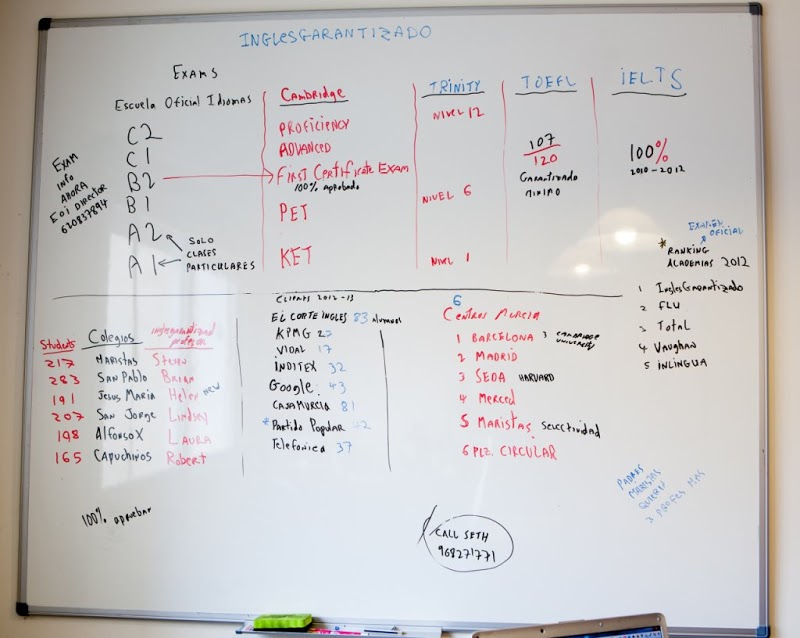 INGLESGARANTIZADO
EXAMS
Escuela Oficial Idiomas
C2
C1
B2
B1
A2
A1
SOLO
CLASES
PARTICULARES
EXAM
INFO
AHORA
EOI DIRECTOR
620837894
Cambridge
PROFICIENCY
ADVANCED
First Certificate Exam
100% aprobado
PET
KET
TRINITY
NIVEL 12
NIVEL 6
NIVEL 1
TOEFL
107
120
Garantizado
MINIMO
iELTS
100%
2010-2012
EXAMEN
OFICIAL
*RANKING
ACADEMIAS 2012
1 InglesGarantizado
2 FLU
3 Total
4 Vaughan
5 INLINGUA
Students Colegios inglesgarantizado profesor
217 MARISTAS Steven
283 SAN Pablo Brian
191 Jesus Maria Helen new
207 SAN Jorge Lindsey
198 AlfonsoX LAURA
165 Capuchinos Robert
100% aprobar
Clientes 2012-13
El CORTE INGLES 83 alumnos
KPMG 27
VIDAL 17
INDITEX 32
Google 43
CASAMURCIA 81
*Partido Popular 42
Telefonica 37
6
Centros Murcia
1 BARCELONA 3 CAMBRIDGE UNIVERSITY
2 MADRID
3 SEDA HARVARD
4 Merced
5 MARISTAS selectividad
6 PLZ. CIRCULAR
CALL SETH
968271771
PADRES
MARISTAS
QUIEREN
3 PROFES MAS